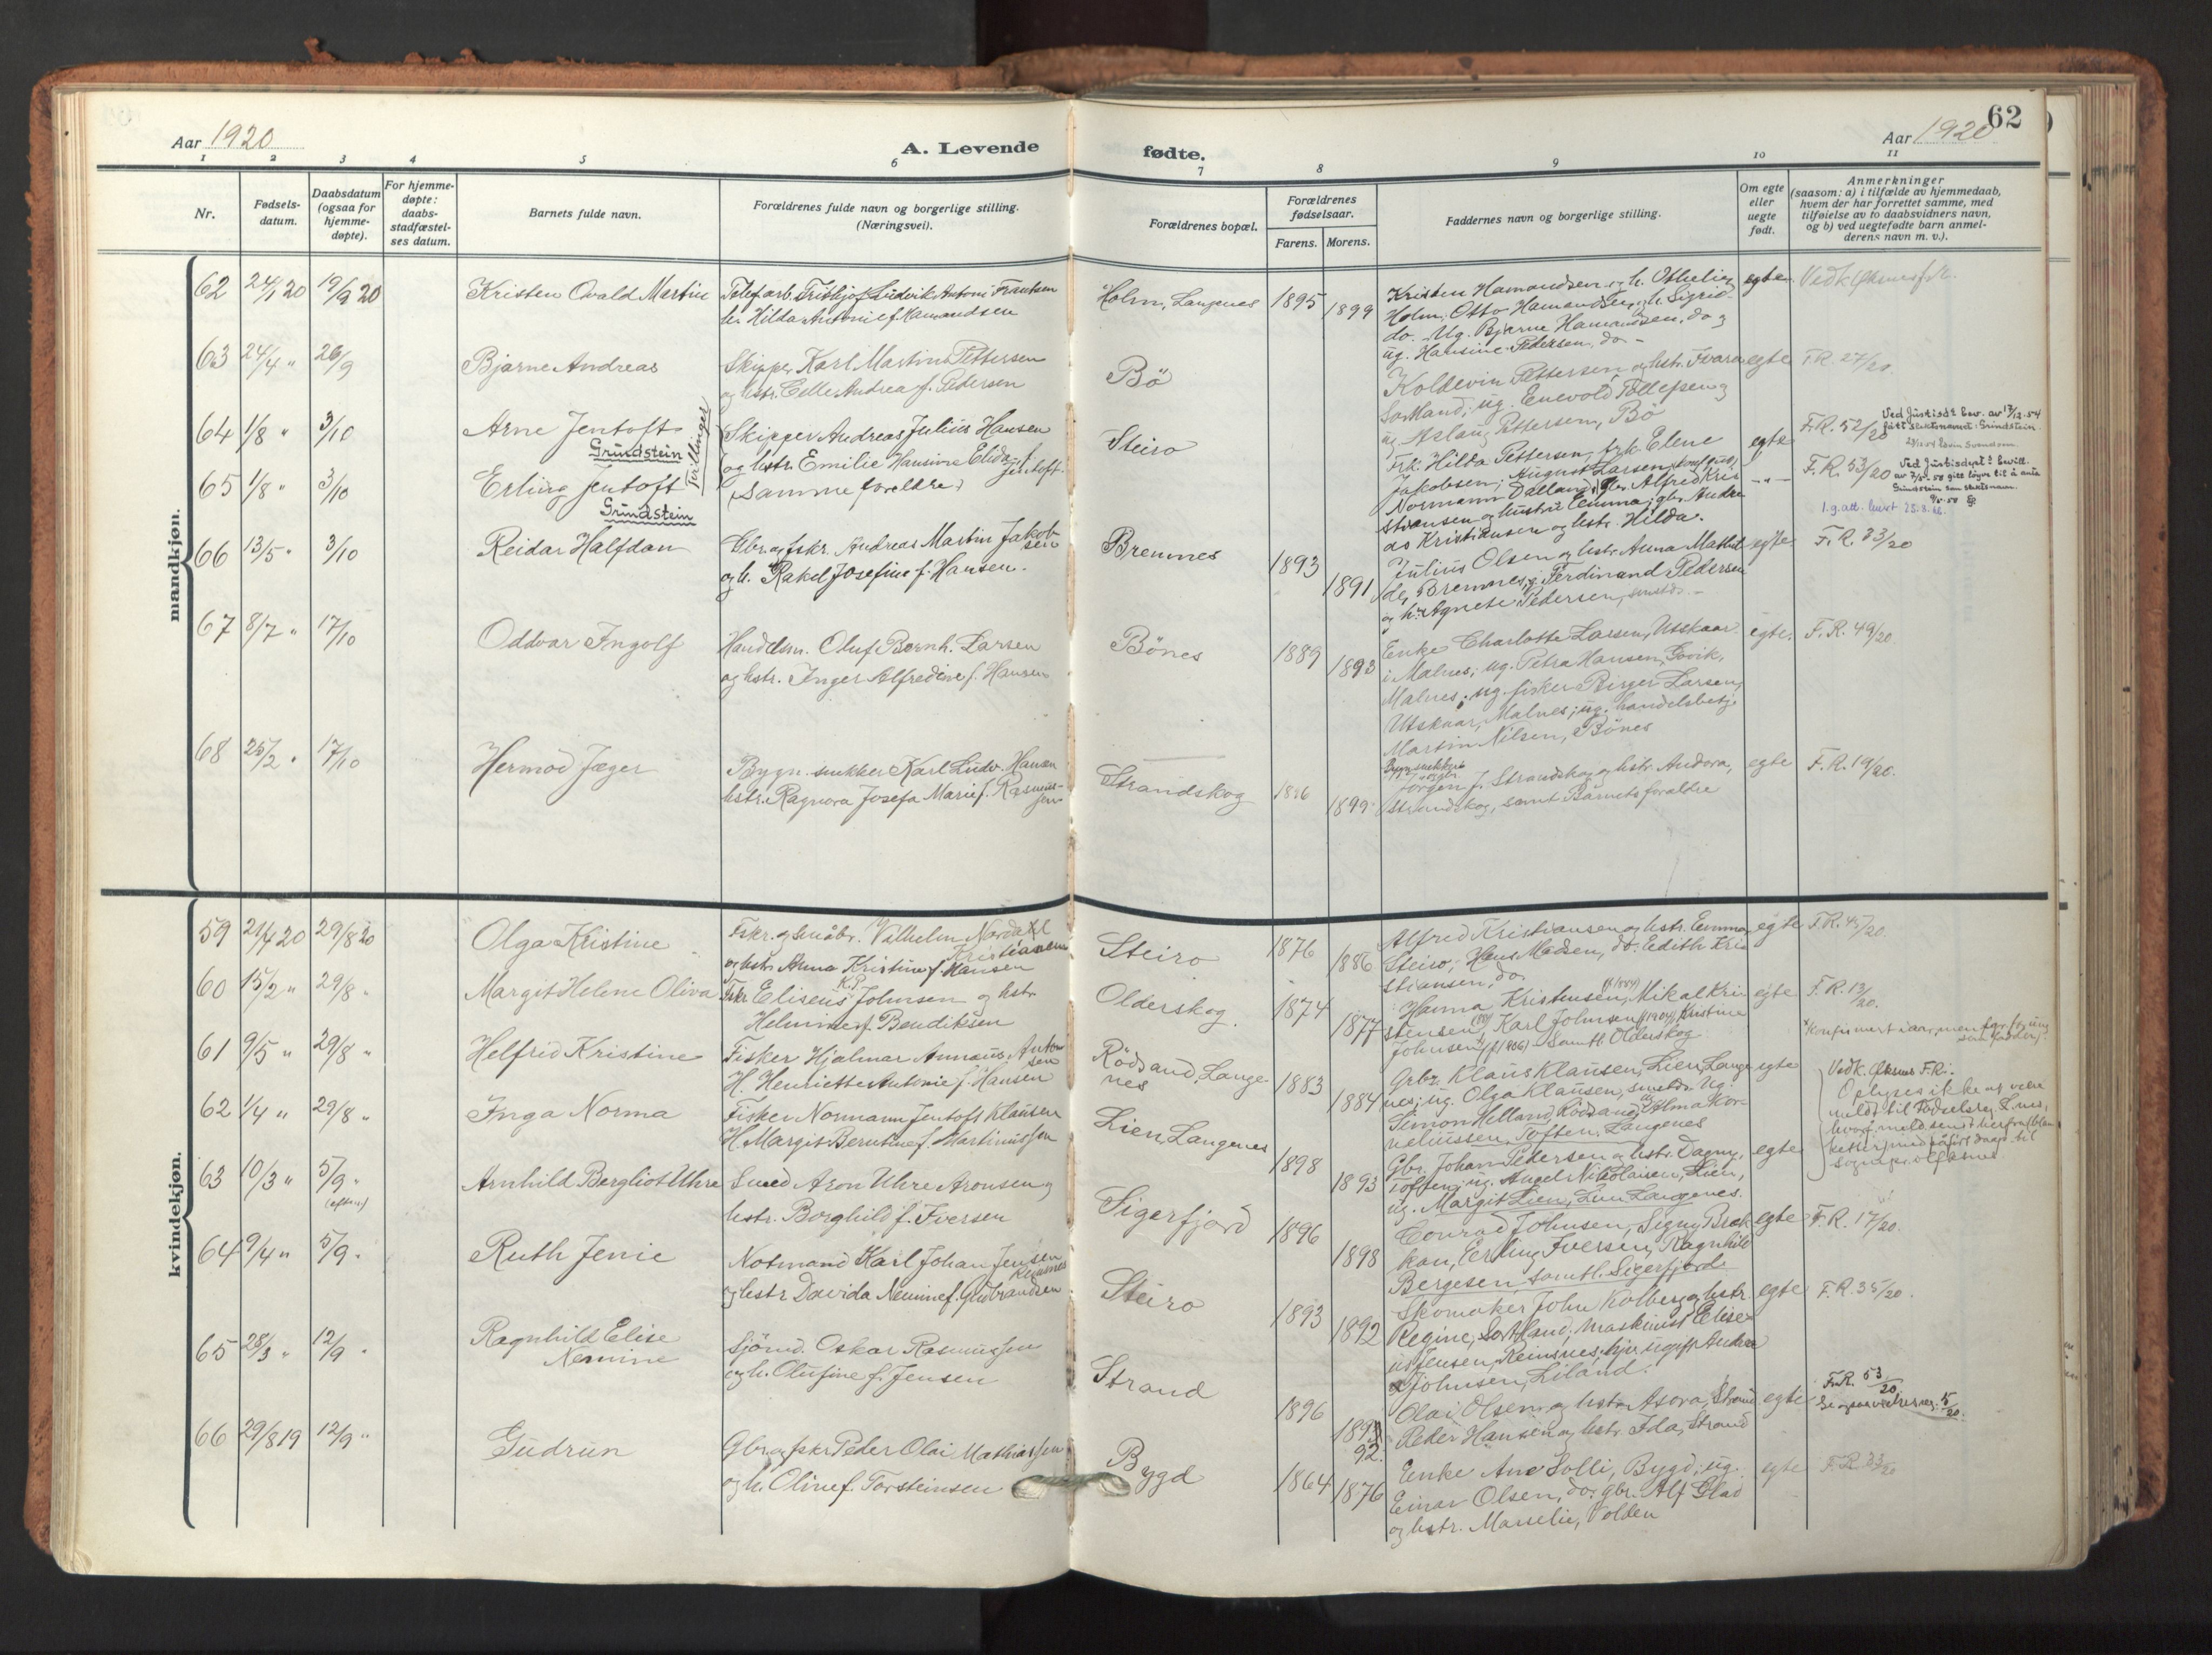 62
Aar 1920
A. Levende
fødte.
Aar 1920
1 2 3 4 5 6 7 8 9 10 11
Nr.
Fødsels-
datum.
Daabsdatum
(ogsaa for
hjemme-
døpte).
For hjemme-
døpte:
daabs-
stadfæstel-
ses datum.
Barnets fulde navn.
Forældrenes fulde navn og borgerlige stilling.
(Næringsvei).
Forældrenes bopæl.
Forældrenes
fødselsaar.
Farens. Morens.
Faddernes navn og borgerlige stilling.
Om egte
eller
uegte
født.
Anmerkninger
(saasom: a) i tilfælde av hjemmedaab,
hvem der har forrettet samme, med
tilføielse av to daabsvidners navn,
og b) ved uegtefødte barn anmel-
derens navn m. v.).
mandkjøn.
62 24/1 20 19/9 20 Kristen Ovald Martin
h. Hilda Antonie f. Hamandsen
Holm, Langenes 1895 1899
Kristen Hamandsen og h. Othelie,
Holm; Otto Hamandsen og h. Sigrid
do. Ug. Bjarne Hamandsen, do og
ug. Hansine Pedersen, do -
egte
63 24/4 " 26/9 Bjarne Andreas
Skipper Karl Martin Pettersen
og hstr. Celle Andrea f. Pedersen
Bö
Koldevin Pettersen og hstr. Ivara
Sortland; ug. Enevold Tollefsen og
ug. Aslaug Pettersen, Bö
egte F.R. 27/20.
64 1/8 " 3/10 Arne Jentoft
Grundstein
Tvillinger
Skipper Andreas Julius Hansen
og hstr. Emilie Hansine Elida f.
Jentoft.
Steiro
Frk. Hilda Pettersen, frk. Elene
Jakobsen; August Larsen,
Normann Dalland, gbr. Alfred Kri
stiansen og hustru Emma; gbr. Andre
as Kristiansen og hstr. Hilda.
egte F.R. 52/20
Ved Justisdt bev. av 17/12-54
fått slektsnavnet: Grindstein.
65 1/8 " 3/10 Erling Jentoft
Grundstein
(Samme foreldre)
- " - F.R. 53/20
Ved Justisdept.s bevill.
av 7/5-58 gitt løyve til å anta
Grindstein som slektsnavn.
66 13/5 " 3/10 Reidar Halfdan
Gbr. og fskr. Andreas Martin Jakob-
sen
og h. Rakel Josefine f. Hansen.
Bremnes 1893 1891
Julius Olsen og hstr. Anna Mathil
de, Bremnes, g. Ferdinand Pedersen
og h. Agnete Pedersen, smstds. -
egte F.R. 33/20
67 8/7 " 17/10 Oddvar Ingolf
Handelsm. Oluf Bernh. Larsen
og hstr. Inger Alfredine f. Hansen
Bönes 1889 1893
Enke Charlotte Larsen, Utskaar
i Malnes; ug. Petra Hansen, Govik,
Malnes; ug. fisker Birger Larsen,
Utskaar, Malnes; ug. handelsbetj.
Martin Nilsen, Bönes
egte. F.R. 49/20
68 25/2 " 17/10 Hermod Jæger
Bygn. snekker Karl Ludv. Hansen
hstr. Ragnora Josefa Marie f. Rasmus-
sen
Strandskog 1896 1899
Bygn.snekker
Jörgen J. Strandskog og hstr. Andora,
Strandskog, samt Barnets foraldre
egte F.R. 19/20.
kvindekjøn.
59 21/4 20 29/8 20 Olga Kristine
Fskr. og småbr. Vilhelm Nordahl
Kristiansen
og hstr. Anna Kristine f. Hansen
Steiro 1876 1886
Alfred Kristiansen og hstr. Emma
Steiro; Hans Madsen, do. Edith Kri
stiansen, do
egte F.R. 45/20.
60 15/2 " 29/8 " Margit Helene Oliva
Fskr. Eliseus K.P. Johnsen og hstr
Helmine f. Bendiksen
Olderskog. 1874 1877
Hanna Kristensen, Mikal Kri
stensen, Karl Johnsen (f 1904) Kristine
Johnsen (f 1906) Samtl. Olderskog
egte F.R. 13/20.
61 9/5 " 29/8 " Helfrid Kristine
Fisker Hjalmar Annæus Anton
sen
H. Henriette Antonie f. Hansen
Rödsand, Lange-
nes 1883 1884
Grbr. Klaus Klausen, Lien, Lange
nes; ug. Olga Klausen, smstds. Ug.
Simon Helland, Rödsand, ug. Hilma Kor
neliussen, Toften, Langenes
egte Vedk. Öksnes F.R.
62 1/4 " 29/8 " Inga Norma
Fisker Normann Jentoft Klausen
H. Margit Berntine f. Martinussen
Lien Langenes 1898 1893
Gbr. Johan Pedersen og hstr. Dagny,
Toften; ug. Angel Nikolaisen, Lien,
ug. Margit Lien, Lien Langenes.
egte
63 10/3 " 5/9 " Arnhild Bergliot Uhre
Smed Aron Uhre Aronsen og
hstr. Borghild f. Iversen
Sigerfjord 1896 1898
Conrad Johnsen, Signy Brek
kan, Erling Iversen, Ragnhild
Bergesen, samtl. Sigerfjord.
egte F.R. 17/20.
64 9/4 " 5/9 " Ruth Jenie
Notmand Karl Johan Jensen
Reinsnes
og hstr. Davida Nemine f. Gudbrandsen
Steiro 1893 1892
Skomaker John Kolberg og hstr.
Regine, Sortland, maskinist Elise
us Jensen, Reinsnes;
Johnsen, Liland.
egte F.R. 35/20.
65 28/3 " 12/9 " Ragnhild Elise
Nemine
Sjömd. Oskar Rasmussen
og h. Olufine f. Jensen
Strand 1896 92.
Olai Olsen og hstr. Asora, Strand
Peder Hansen og hstr. Ida, Strand
egte F.R. 53/20
66 29/8 19 12/9 " Gudrun
Gbr. og fskr. Peder Olai Mathiassen
og h. Oline f. Torsteinsen
Bygd 1864 1876
Enke Ane Solli, Bygd; ug.
Einar Olsen, do; gbr. Alf Glad
og hstr. Marselie, Volden
egte F.R. 33/20